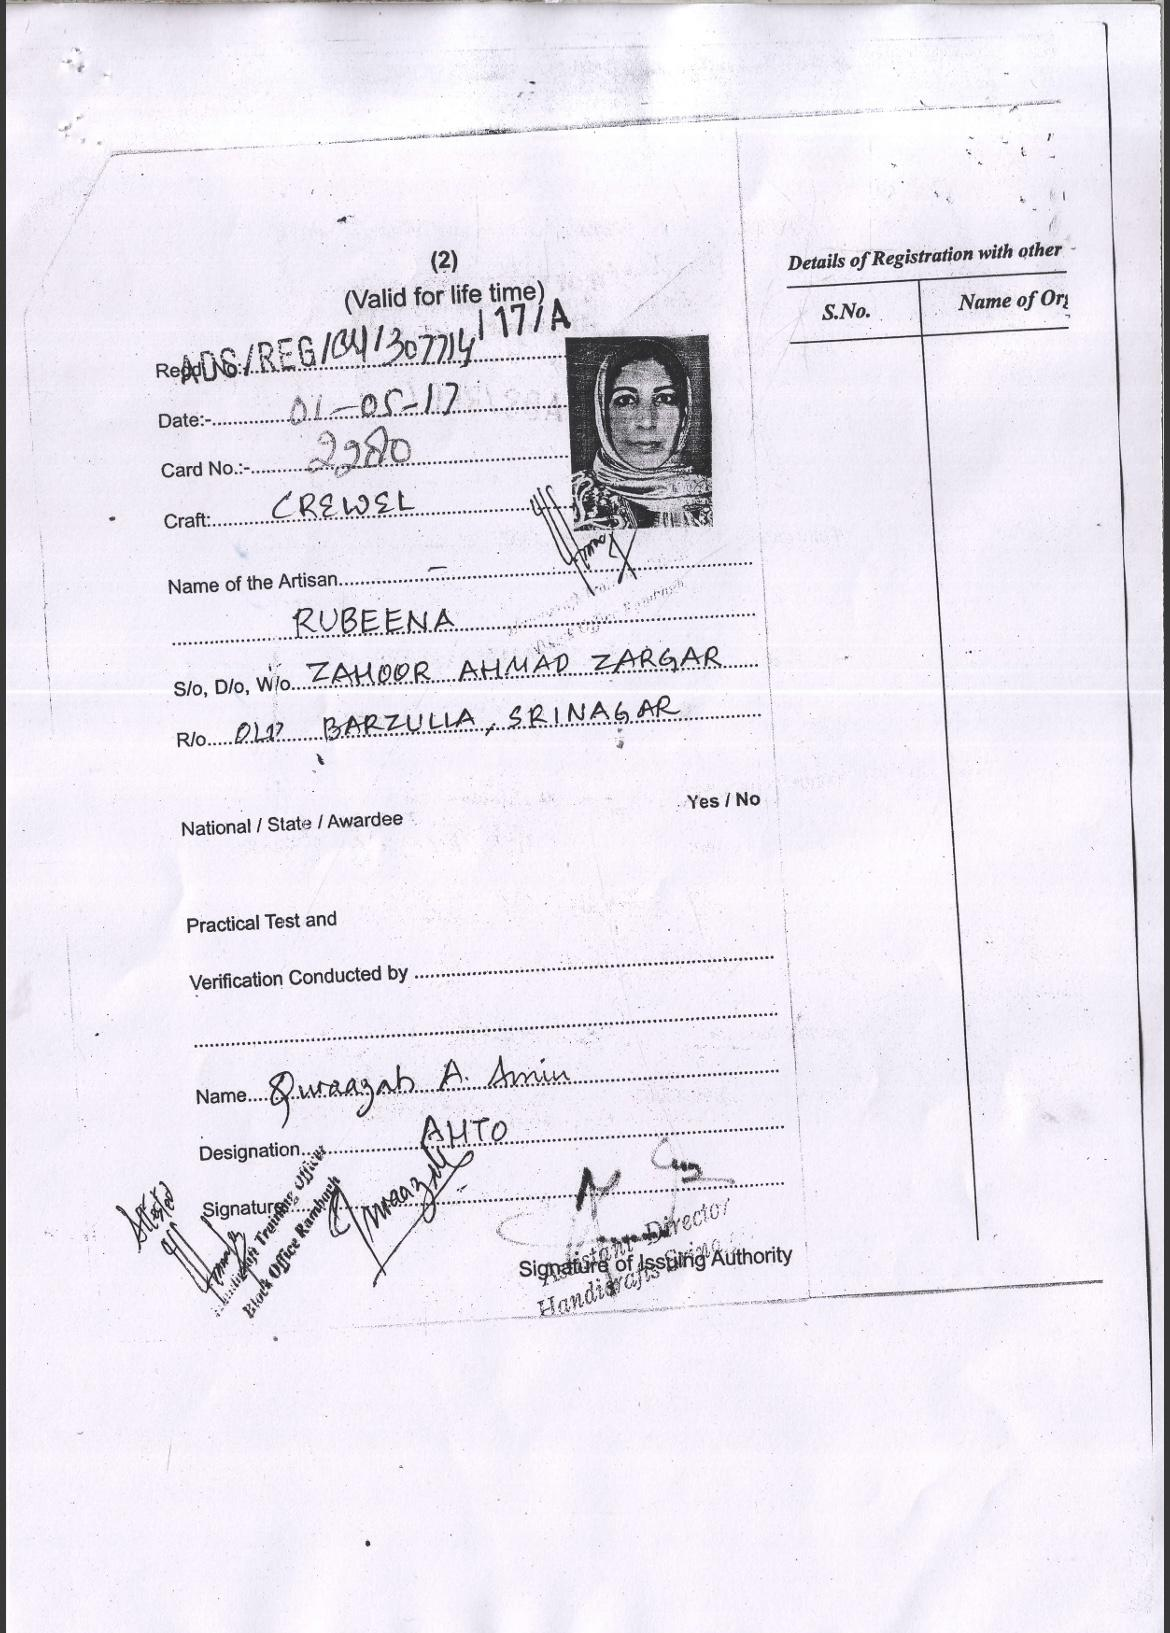 (2)
(Valid for life time)
Regd. No:- ADS/REG/04/307714/17/A
Date:- 01-05-17
Card No.:- 2280
Craft: CREWEL
Name of the Artisan
RUBEENA
S/o, D/o, W/o ZAHOOR AHMAD ZARGAR
R/o OLD BARZULLA, SRINAGAR
National / State / Awardee Yes / No
Practical Test and
Verification Conducted by
Name Quraazah A. Amin
Designation AHTO
Signature
Attested
Handicraft Training Officer
Block Office Rambagh
Assistant Director
Handicrafts Srinagar
Signature of Issuing Authority
Details of Registration with other
S.No. Name of Org